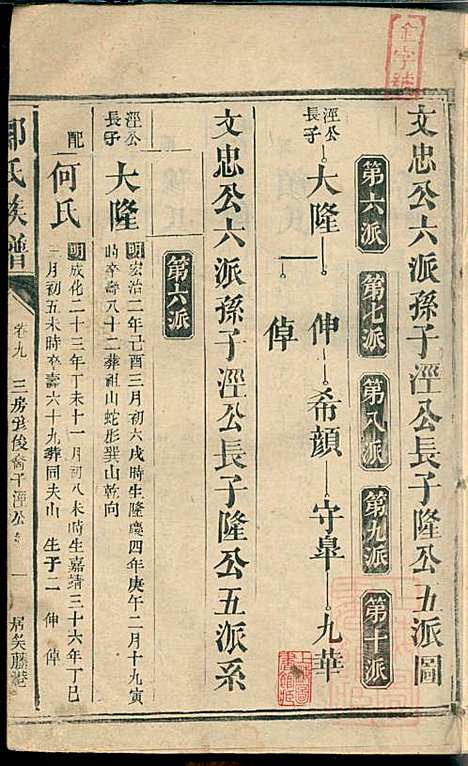 金字號
文忠公六派孫子涇公長子隆公五派圖
第六派
第七派
第八派
第九派
第十派
涇公長子
大隆
伸
希顔
守臯
九華
倬
文忠公六派孫子涇公長子隆公五派系
第六派
涇公長子
大隆
明宏治二年己酉三月初六戌時生隆慶四年庚午二月十九寅
時卒壽八十二葬祖山蛇形巽山乾向
配
何氏
明成化二十三年丁未十一月初八未時生嘉靖三十六年丁巳
月初五未時卒壽六十九葬同夫山 生子二 伸 倬
氏族譜
卷九
三房
俊裔子涇公
一
居敦藤